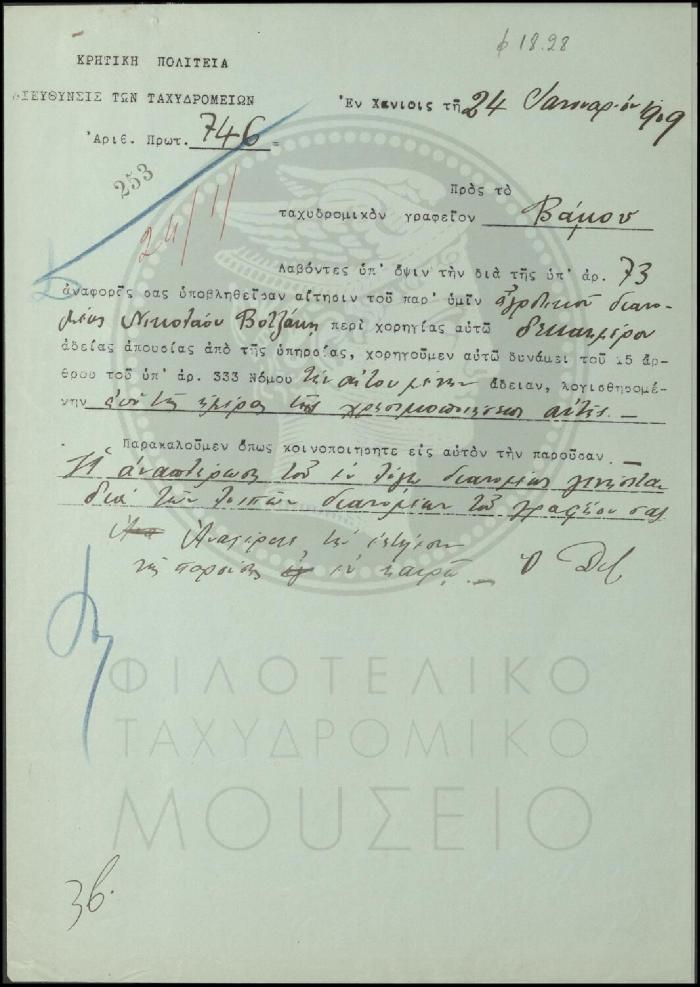 φ 18.28
ΚΡΗΤΙΚΗ ΠΟΛΙΤΕΙΑ
ΔΙΕΥΘΥΝΣΙΣ ΤΩΝ ΤΑΧΥΔΡΟΜΕΙΩΝ
Ἐν Χανίοις τῇ 24 Ἰανουαρίου 1909
Ἀριθ. Πρωτ. 746
253
24/1/
Πρὸς τὸ
ταχυδρομικὸν γραφεῖον Βάμου
Λαβόντες ὑπ' ὄψιν τὴν διὰ τῆς ὑπ' ἀρ. 73
ἀναφορᾶς σας ὑποβληθεῖσαν αἴτησιν τοῦ παρ' ὑμῖν ἀγροτικοῦ διανο-
μέως Νικολάου Βοτζάκη περὶ χορηγίας αὐτῷ δεκαημέρου
ἀδείας ἀπουσίας ἀπὸ τῆς ὑπηρεσίας, χορηγοῦμεν αὐτῷ δυνάμει τοῦ 15 ἄρ-
θρου τοῦ ὑπ' ἀρ. 333 Νόμου τὴν αἰτουμένην ἄδειαν, λογισθησομέ-
νην ἀπὸ τῆς ἡμέρας τῆς χρησιμοποιήσεως αὐτῆς.
Παρακαλοῦμεν ὅπως κοινοποιήσητε εἰς αὐτὸν τὴν παροῦσαν.
Ἡ ἀναπλήρωσις τοῦ ἐν λόγῳ διανομέως γενήσεται
διὰ τῶν λοιπῶν διανομέων τοῦ γραφείου σας
Ἀναφέρατε τὴν
τῆς παρούσης ἐν καιρῷ
ΦΙΛΟΤΕΛΙΚΟ
ΤΑΧΥΔΡΟΜΙΚΟ
ΜΟΥΣΕΙΟ